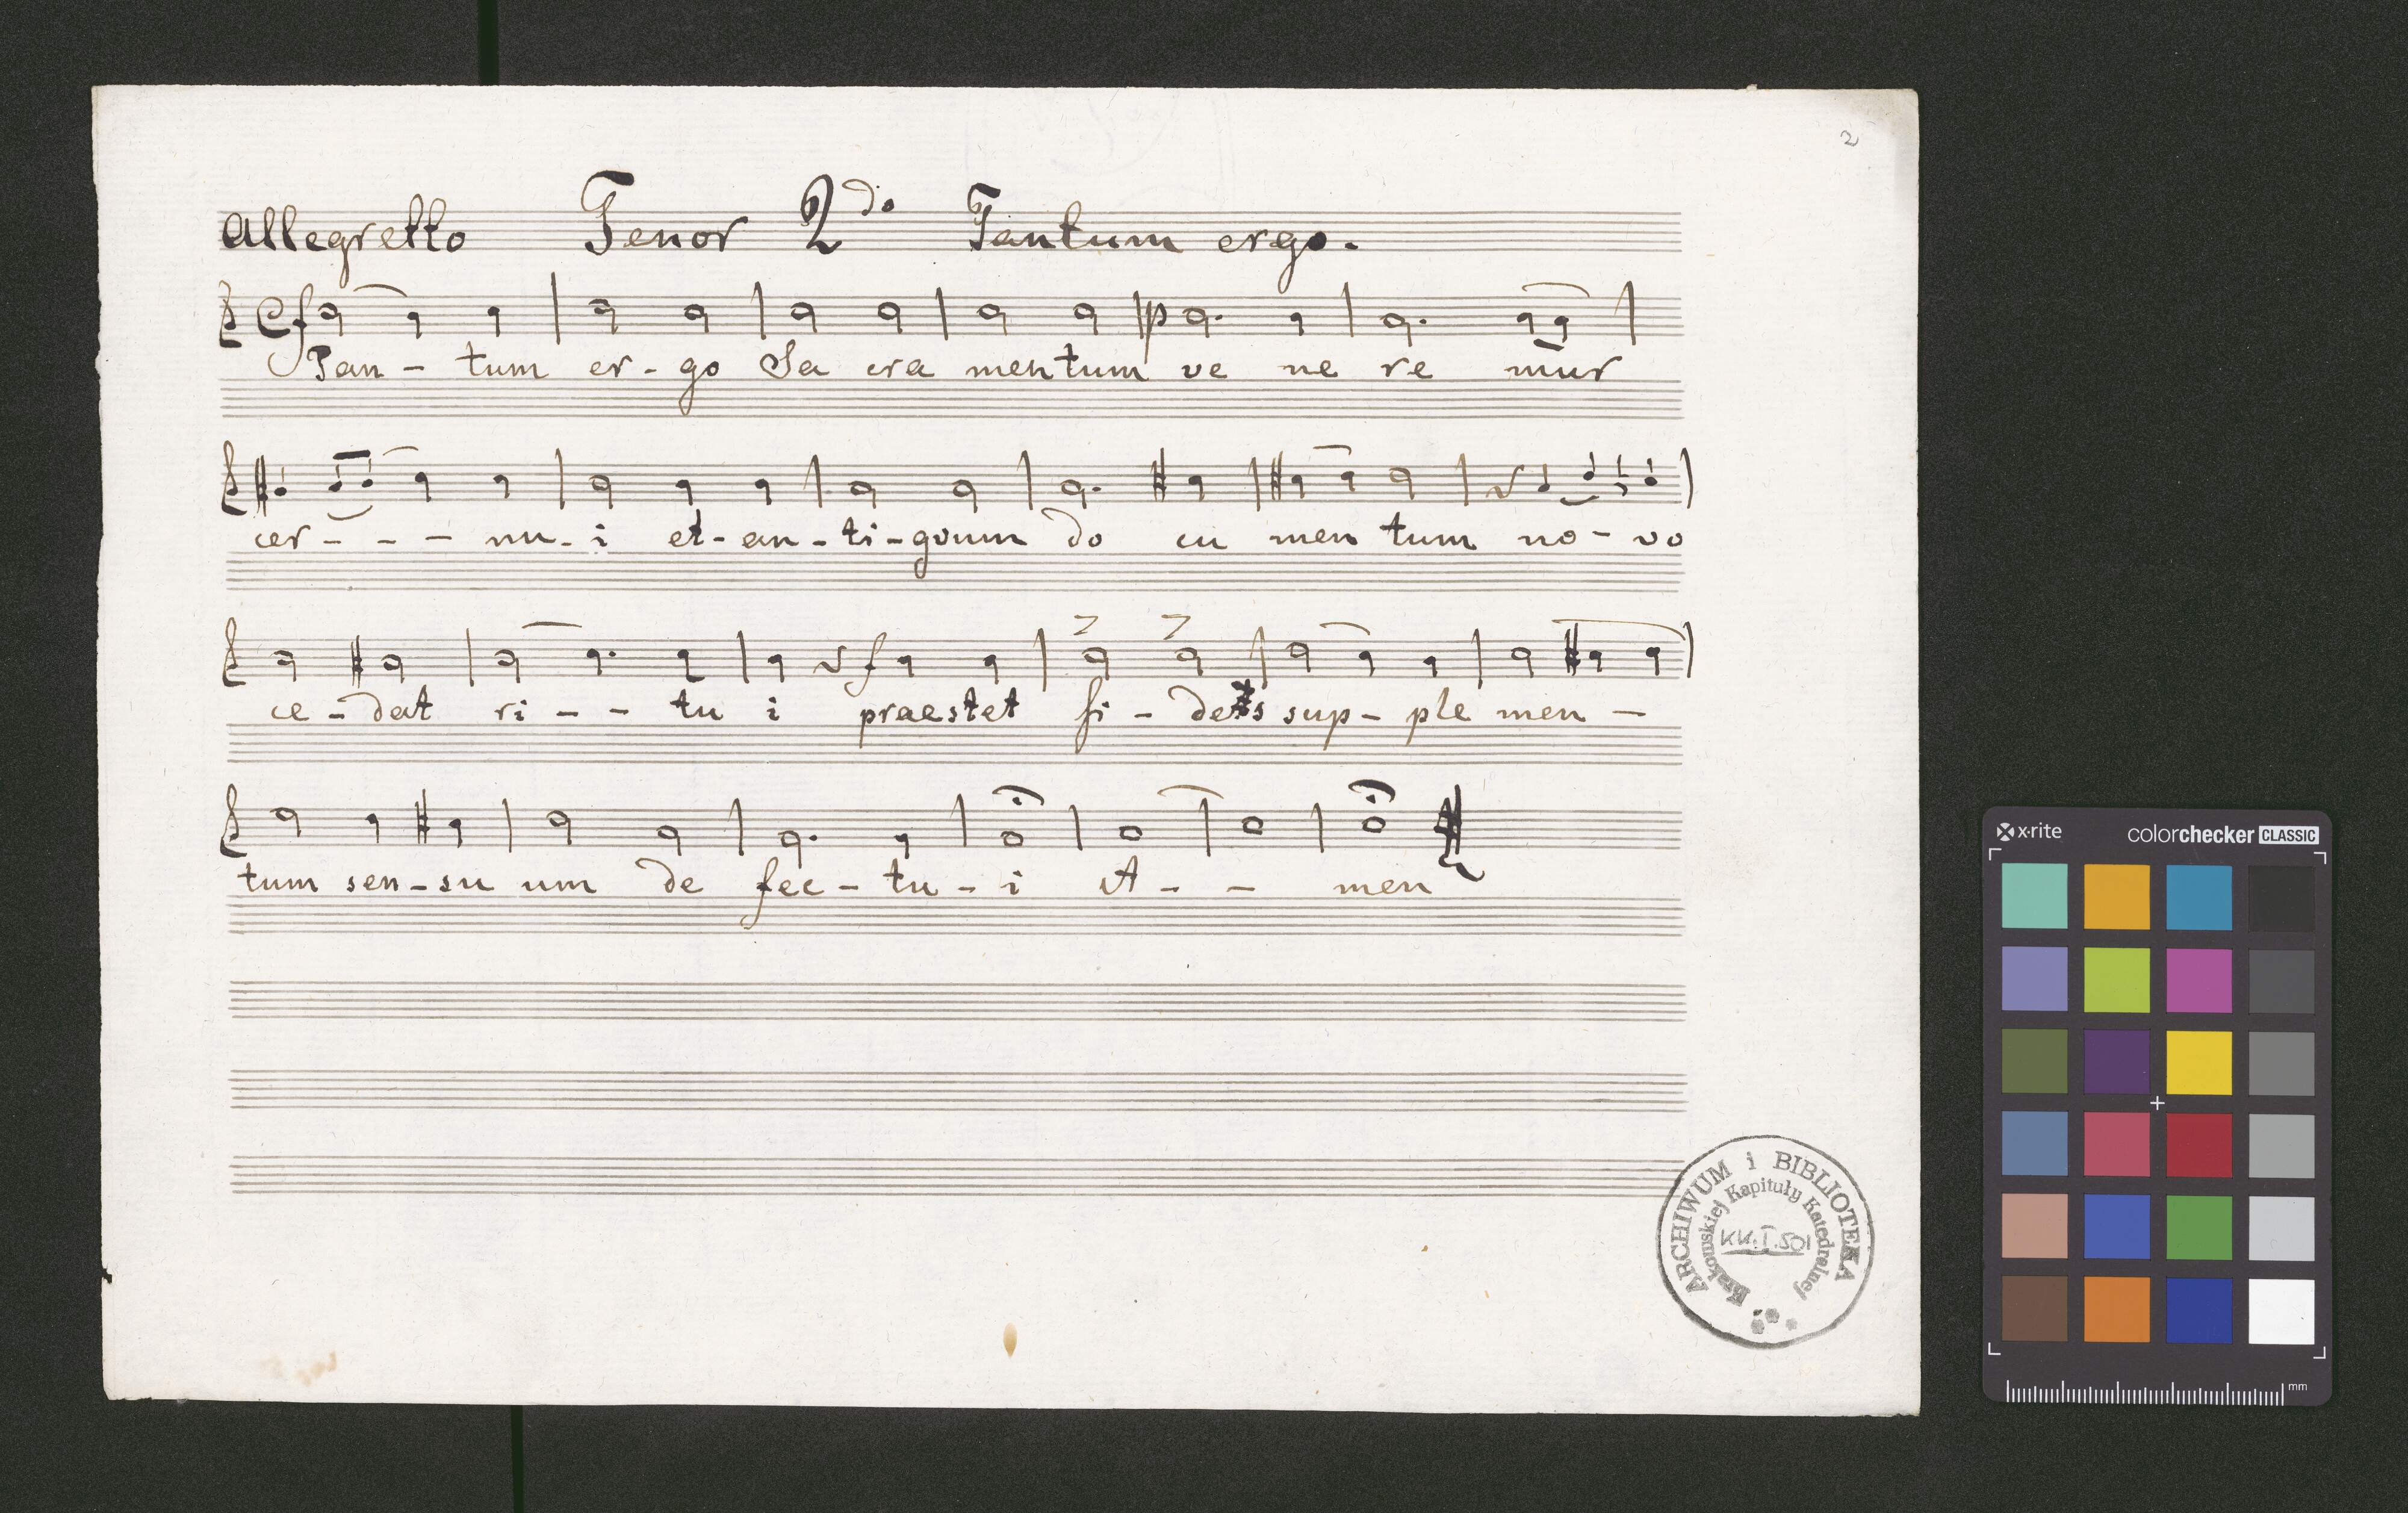 2
Allegretto Tenor 2do Tantum ergo.
C f p
Tan - tum er - go Sa cra mentum ve ne re mur
cer - - - nu - i et - an - ti - quum do cu men tum no - vo
f
ce - dat ri - - tu i praestet fi - des sup - ple men -
tum sen - su um de fec - tu - i A - - men
ARCHIWUM i BIBLIOTEKA
Krakowskiej Kapituły Katedralnej
KK.I.501
x·rite
colorchecker CLASSIC
mm